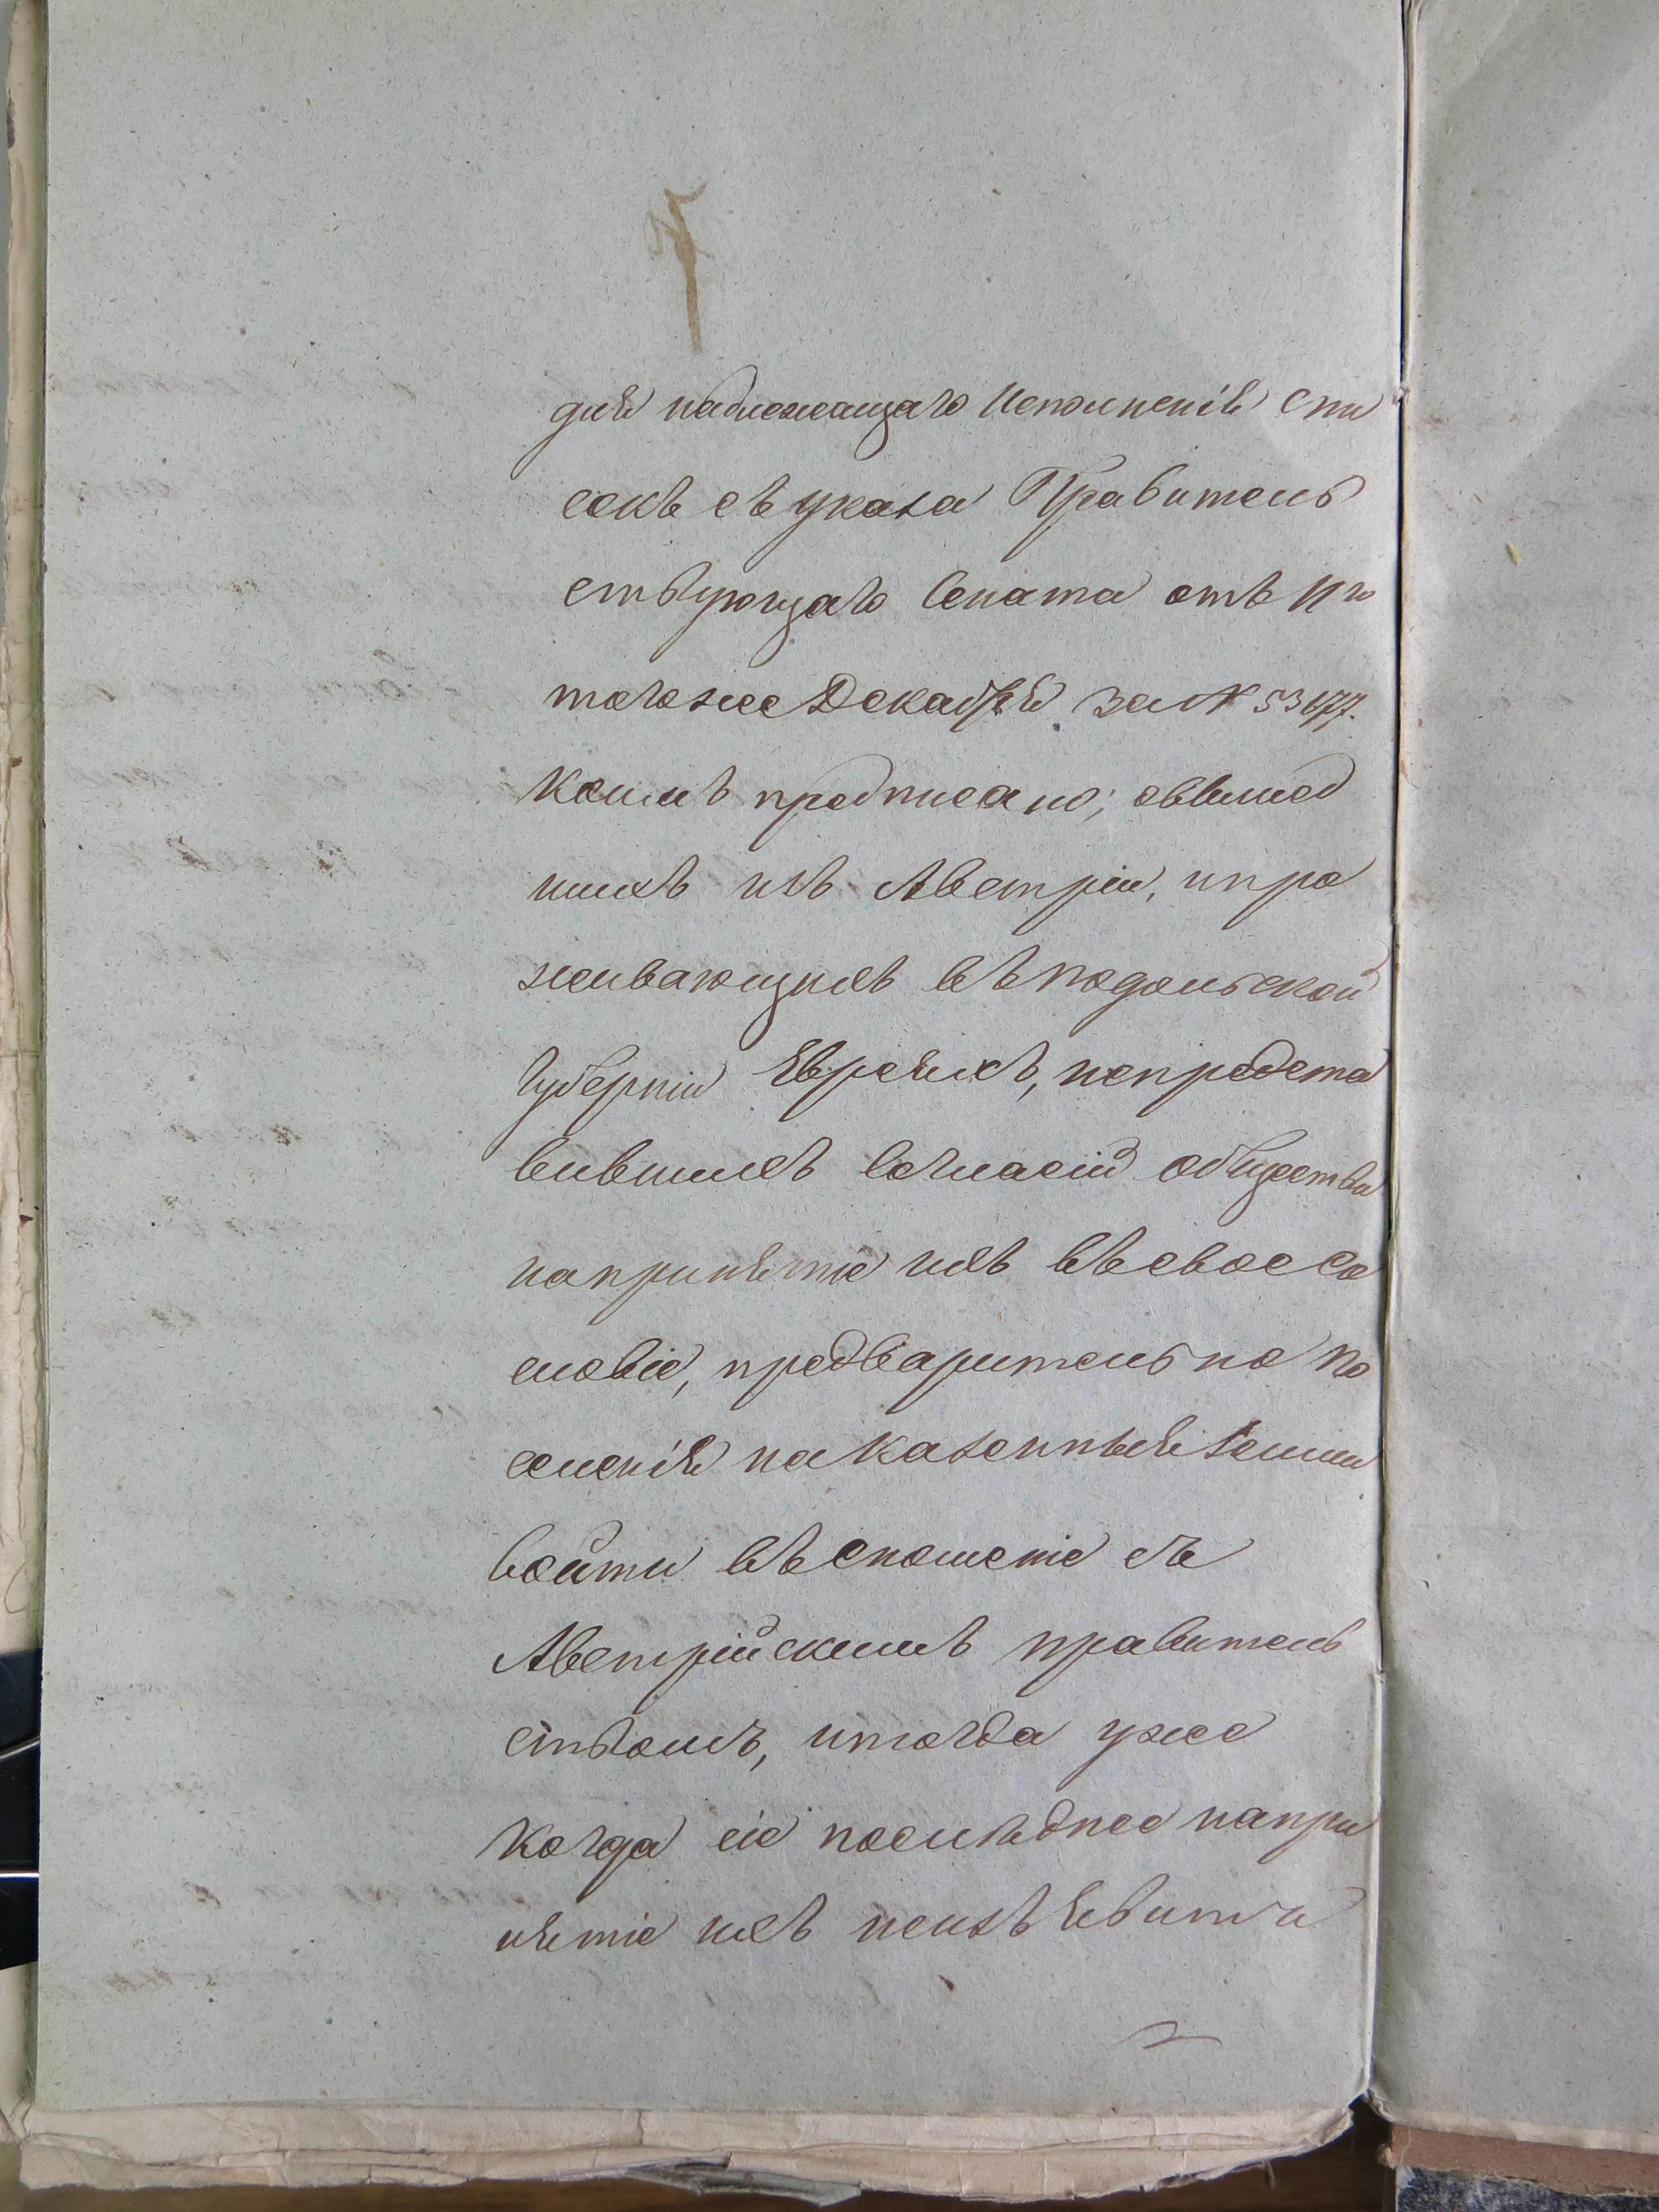 для надлежащаго Исполненія спи
сокъ съ указа Правитель
ствующаго Сената отъ 11го
тогоже Декабря за № 53677.
коимъ предписано; овышед
шихъ изъ Австріи, ипро
живающихъ въ подольской
Губерніи Евреяхъ, непредста
вившихъ согласія общества
напринятіе ихъ въ свое со
словіе, предварительно по
селенія на казенныя земли
войти въ сношеніе съ
Австрійскимъ правитель
ствомъ, итогда уже
когда сіе последнее напри
нятіе ихъ неизъявитъ